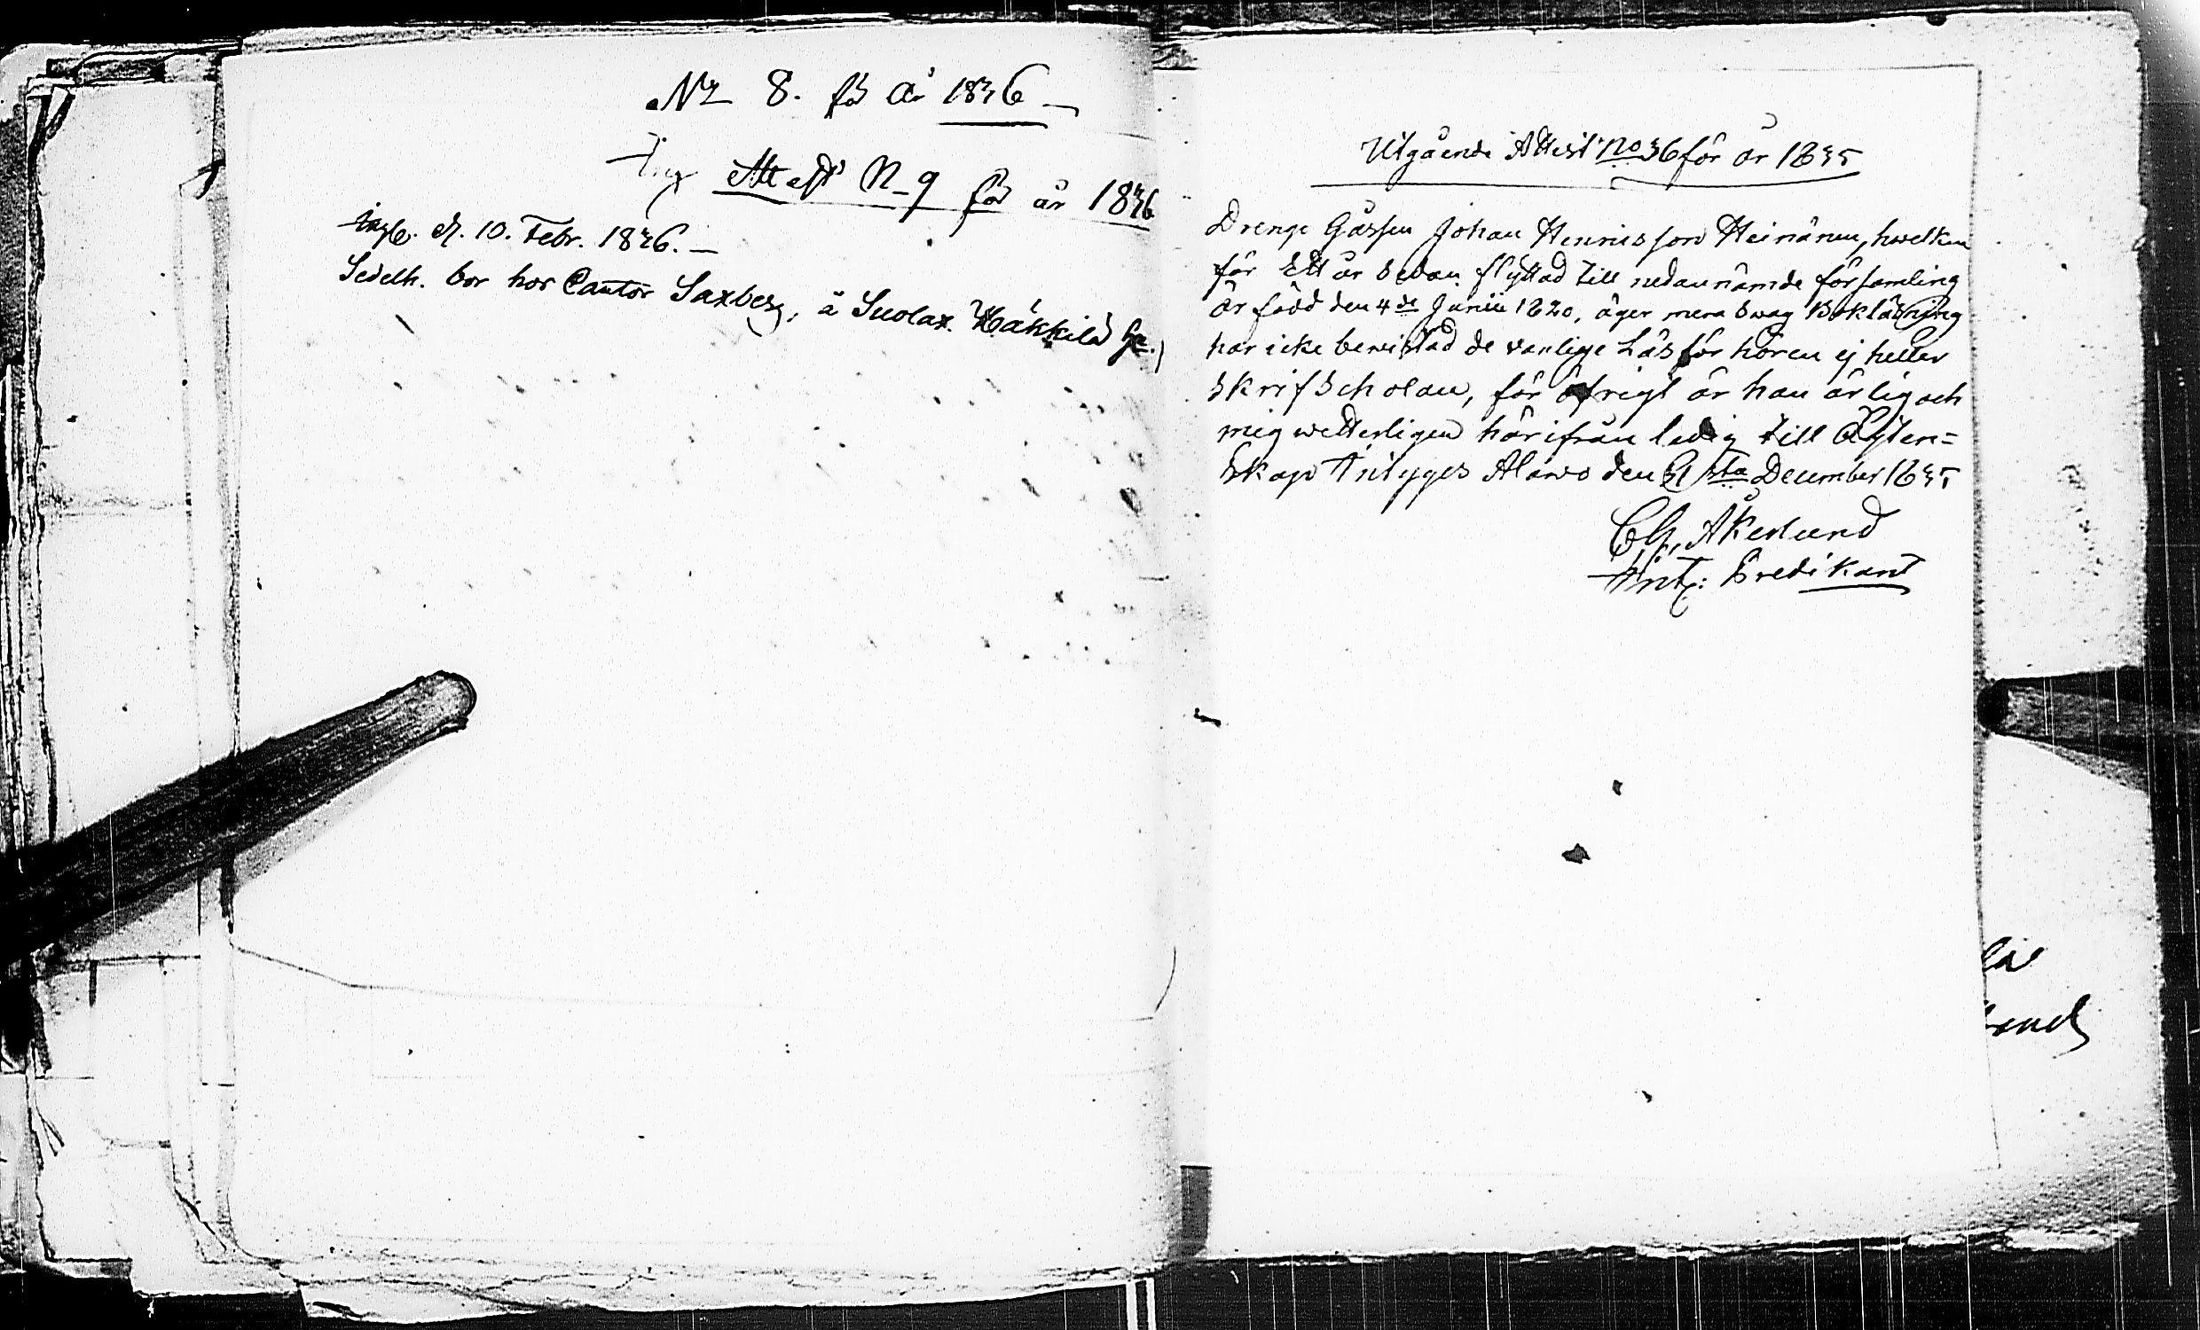 No 8. för år 1836
Ing Attest N_9 för år 1836
ingb. d. 10. Febr. 1836.
Sedelh. bor hos Cantor Saxberg, å Suolax. Häkkilä
Utgående Attest No 36 för år 1835
Drenge Gåssen Johan Henricsson Heinänen, hwelken
för Ett år sedan flyttad till nedannämde församling
är född den 4de Junii 1820, äger mera swag Bokläsning
har icke bewistad de vanlige Läsförhören ej heller
Skrifscholan, för öfrigt är han ärlig och
mig wetterligen härifrån ledig till Ägten=
skap Intyges Alawo den 31sta December 1835
CG. Åkerlund
Predikant
lä